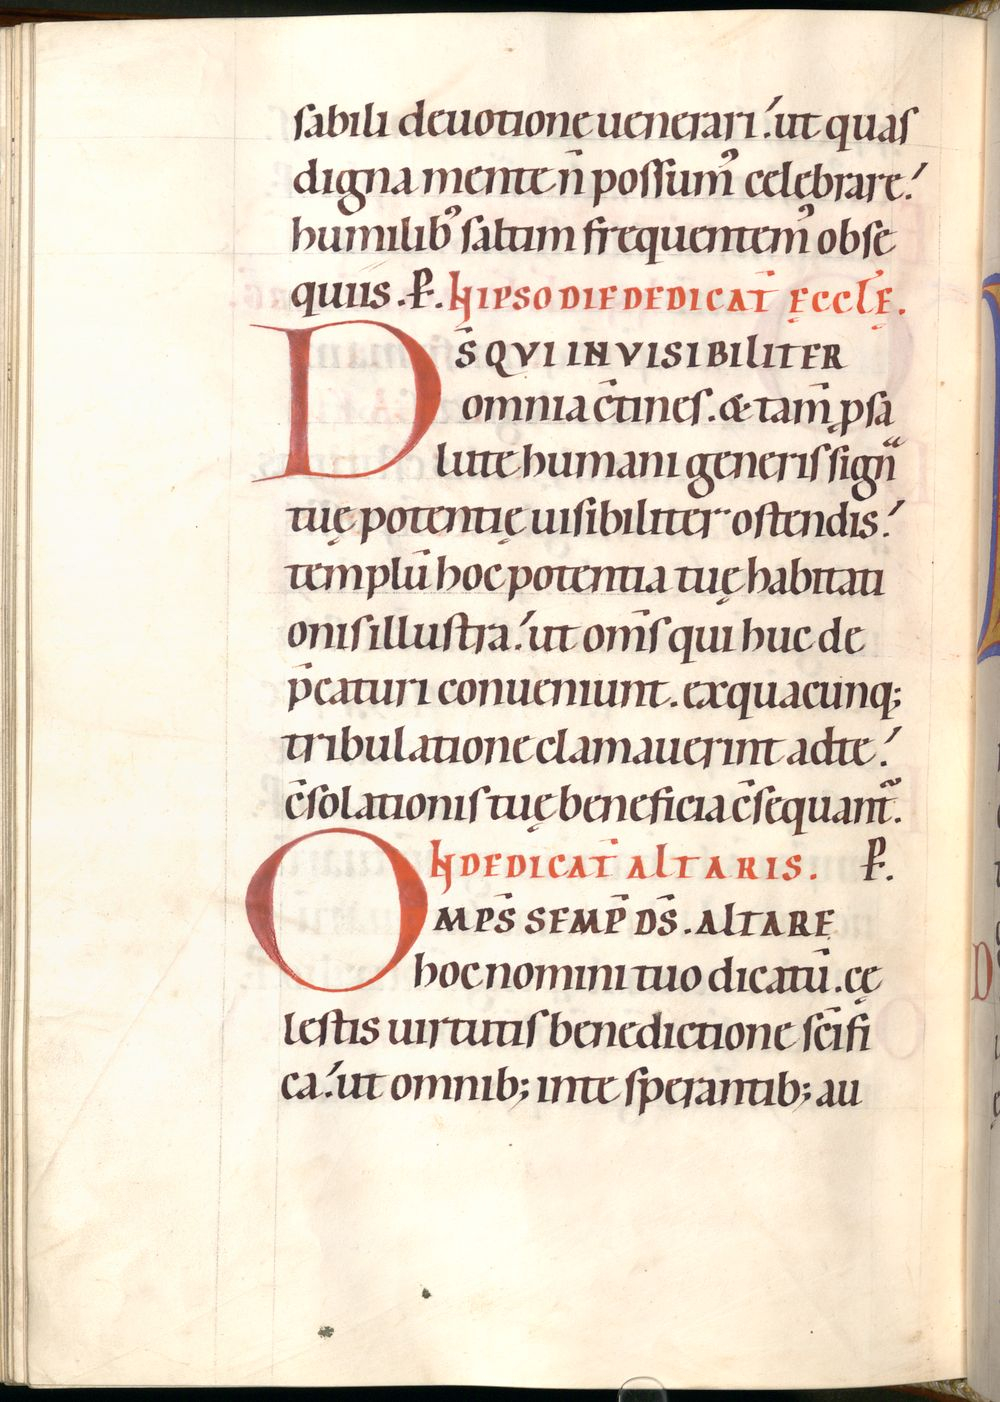 sabili deuotione uenerari. ut quas
digna mente n̄ possum᷒ celebrare.
humilib᷒ saltim frequentem᷒ obse
quiis. P̲. IN IPSO DIE DEDICAT̄ ĘCCLĘ̄.
DS̄ QVI INVISIBILITER
omnia c̄tines. & tam̄ ꝑ sa
lute humani generis signa
tuę potentię uisibiliter ostendis.
templū hoc potentia tuę habitati
onis illustra. ut om̄s qui huc de
p̄caturi conueniunt. ex quacunq;
tribulatione clamauerint ad te.
c̄solationis tuę beneficia c̄sequant̄.
IN DEDICAT̄ ALTARIS. P̲.
OMPS̄ SEMP̄ DS̄. ALTARE
hoc nomini tuo dicatū. cę
lestis uirtutis benedictione sc̄ifi
ca. ut omnib; in te sperantib; au